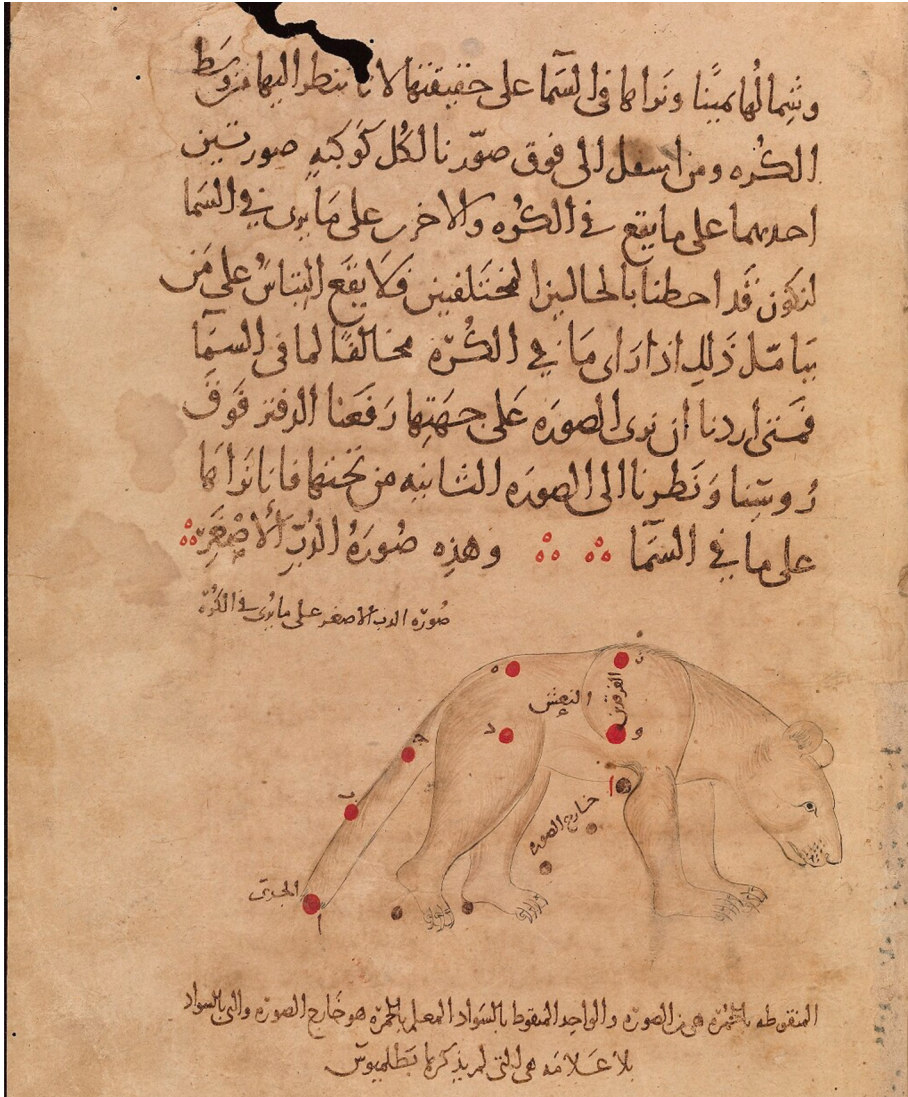 وشِمالُها يمينًا ونَراها في السَّما على حقيقتها لانا ننظر اليها من وَسَط
الكُره ومن اسفل الى فوق صوّرنا لكُل كَوكبهٍ صورتين
احديهما على ما يقع في الكُرَه والاخرى على مَا يرى في السَما
لنكَون قَد احطنا بالحَالين المختلفين فَلا يَقَع التباسُ على مَن
يتامّل ذَلك اذا رَاى مَا في الكُرّة مخالفًا لما في السمَا
فمَتى اردنا ان نرى الصورَه عَلى جهَتِها رَفَعنا الدفتر فَوقَ
رُوسِنا وَنَظرنا الى الصورَه الثانيه من تَحتها فانا نَراها
على ما في السَّمَا وهذِه صُورَةُ الدُبِّ الأصْغَرِ
صُورَه الدب الأصغر على ما يُرى في الكُرَة
ه
ز
النعش
الفرقدين
و
د
ج
ا
خارج الصوره
ب
الجدى
ا
المنقوطه بالحُمْرَه هي من الصورَه والواحِد المنقوط بالسَواد المعلم بالحُمرَه هو خَارج الصورَه والتي بالسواد
بلا عَلامَه هي التي لم يذكرها بَطلميوس